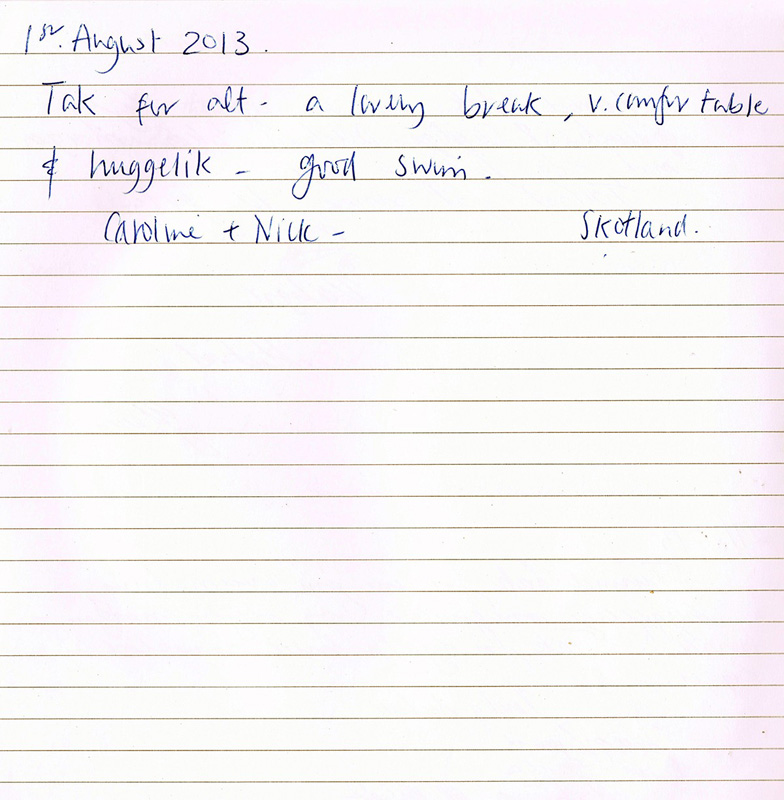 1st. August 2013.
Tak for alt - a lovely break, v. comfortable
& huggelik - good swim.
Caroline + Nick - Skotland.